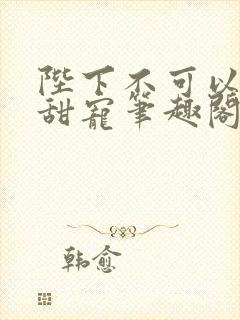 陛下不可以
甜寵筆趣閣
韩愈